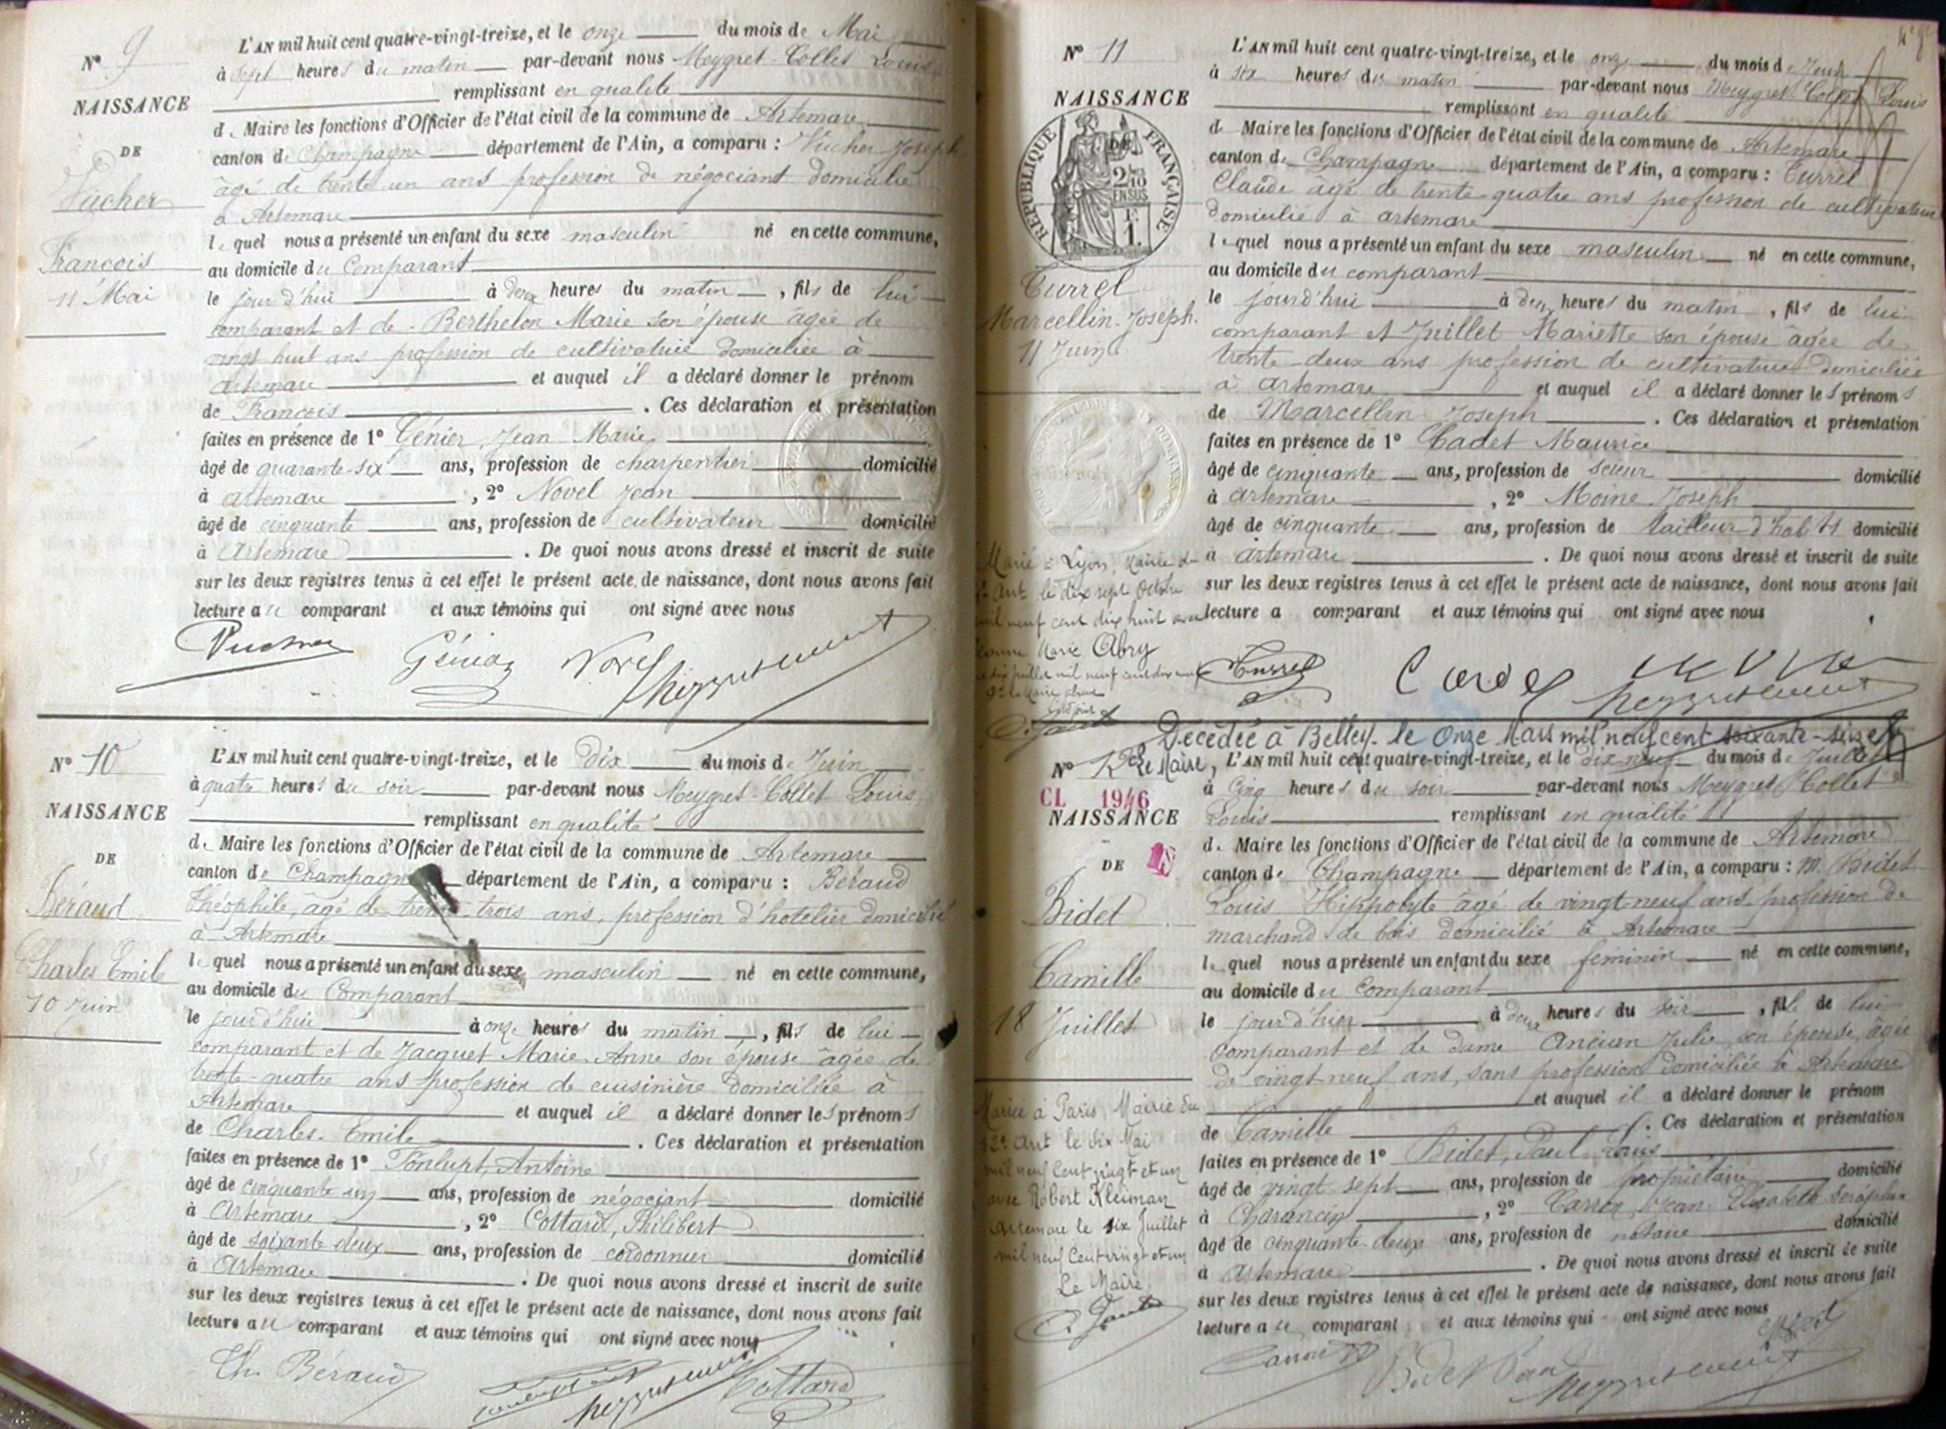 N° 9
NAISSANCE
DE
Vucher
François
11 Mai
L'AN mil huit cent quatre-vingt-treize, et le onze du mois de Mai
à sept heures du matin par-devant nous Meygret-Collet Louis
remplissant en qualité
de Maire les fonctions d'Officier de l'état civil de la commune de Artemare
canton de Champagne département de l'Ain, a comparu : Vucher Joseph
âgé de trente un ans profession de négociant domicilié
à Artemare
lequel nous a présenté un enfant du sexe masculin né en cette commune,
au domicile du Comparant
le jour d'hui à deux heures du matin, fils de lui
comparant et de Berthelon Marie son épouse âgée de
vingt huit ans profession de cultivatrice domiciliée à
Artemare et auquel il a déclaré donner le prénom
de François. Ces déclaration et présentation
faites en présence de 1° Génier Jean Marie
âgé de quarante-six ans, profession de charpentier domicilié
à Artemare, 2° Novel Jean
âgé de cinquante ans, profession de cultivateur domicilié
à Artemare. De quoi nous avons dressé et inscrit de suite
sur les deux registres tenus à cet effet le présent acte de naissance, dont nous avons fait
lecture au comparant et aux témoins qui ont signé avec nous
Vucher Génier Novel
N° 10
NAISSANCE
DE
Béraud
Charles Emile
10 Juin
L'AN mil huit cent quatre-vingt-treize, et le Dix du mois de Juin
à quatre heures du soir par-devant nous Meygret-Collet Louis
remplissant en qualité
de Maire les fonctions d'Officier de l'état civil de la commune de Artemare
canton de Champagne département de l'Ain, a comparu : Béraud
Théophile, âgé de trente trois ans, profession d'hotelier domicilié
à Artemare
lequel nous a présenté un enfant du sexe masculin né en cette commune,
au domicile du Comparant
le jour d'hui à onze heures du matin, fils de lui
comparant et de Jacquet Marie-Anne son épouse âgée de
trente-quatre ans profession de cuisinière domiciliée à
Artemare et auquel il a déclaré donner les prénoms
de Charles-Emile. Ces déclaration et présentation
faites en présence de 1° Antoine
âgé de cinquante un ans, profession de négociant domicilié
à Artemare, 2° Cottard, Philibert
âgé de soixante deux ans, profession de cordonnier domicilié
à Artemare. De quoi nous avons dressé et inscrit de suite
sur les deux registres tenus à cet effet le présent acte de naissance, dont nous avons fait
lecture au comparant et aux témoins qui ont signé avec nous
Th. Béraud Cottard
N° 11
NAISSANCE
RÉPUBLIQUE FRANÇAISE
2/10 EN SUS
1 F.
Turrel
Marcellin-Joseph
11 Juin
L'AN mil huit cent quatre-vingt-treize, et le onze du mois de Juin
à six heures du matin par-devant nous Meygret-Collet Louis
remplissant en qualité
de Maire les fonctions d'Officier de l'état civil de la commune de Artemare
canton de Champagne département de l'Ain, a comparu : Turrel
Claude âgé de trente-quatre ans profession de cultivateur
domicilié à artemare
lequel nous a présenté un enfant du sexe masculin né en cette commune,
au domicile du comparant
le jourd'hui à deux heures du matin, fils de lui
comparant et Juillet Mariette son épouse âgée de
trente-deux ans profession de cultivatrice domiciliée
à artemare et auquel il a déclaré donner les prénoms
de Marcellin Joseph. Ces déclaration et présentation
faites en présence de 1° Cadet Maurice
âgé de cinquante ans, profession de scieur domicilié
à artemare, 2° Moine Joseph
âgé de cinquante ans, profession de tailleur d'habits domicilié
à artemare. De quoi nous avons dressé et inscrit de suite
sur les deux registres tenus à cet effet le présent acte de naissance, dont nous avons fait
lecture a comparant et aux témoins qui ont signé avec nous
Marié à Lyon, Mairie du
Art le dix sept Octobre
mil neuf cent dix huit avec
Marie Abry
Turrel Cadet
Décédée à Belley le Onze Mars mil neuf cent soixante-seize
Le Maire,
N° 12
CL 1946
NAISSANCE
DE
Bidet
Camille
18 Juillet
L'AN mil huit cent quatre-vingt-treize, et le dix-neuf du mois de Juillet
à cinq heures du soir par-devant nous Meygret-Collet
Louis remplissant en qualité
de Maire les fonctions d'Officier de l'état civil de la commune de Artemare
canton de Champagne département de l'Ain, a comparu : M. Bidet
Louis Hippolyte âgé de vingt neuf ans, profession de
marchand de bois domicilié à Artemare
lequel nous a présenté un enfant du sexe féminin né en cette commune,
au domicile du Comparant
le jour d'hier à deux heures du soir, fille de lui
comparant et de dame Ancian Julie, son épouse, âgée
de vingt-neuf ans, sans profession domiciliée à Artemare
et auquel il a déclaré donner le prénom
de Camille. Ces déclaration et présentation
faites en présence de 1° Bidet, Paul Louis
âgé de vingt sept ans, profession de propriétaire domicilié
à Charancin, 2° Carrier, Jean Elisabeth Séraphin
âgé de cinquante-deux ans, profession de notaire domicilié
à artemare. De quoi nous avons dressé et inscrit de suite
sur les deux registres tenus à cet effet le présent acte de naissance, dont nous avons fait
lecture au comparant et aux témoins qui ont signé avec nous
Mariée à Paris, Mairie du
12e Art le six Mai
mil neuf cent vingt et un
avec Robert Kleiman
Artemare le six Juillet
mil neuf cent vingt et un
Le Maire